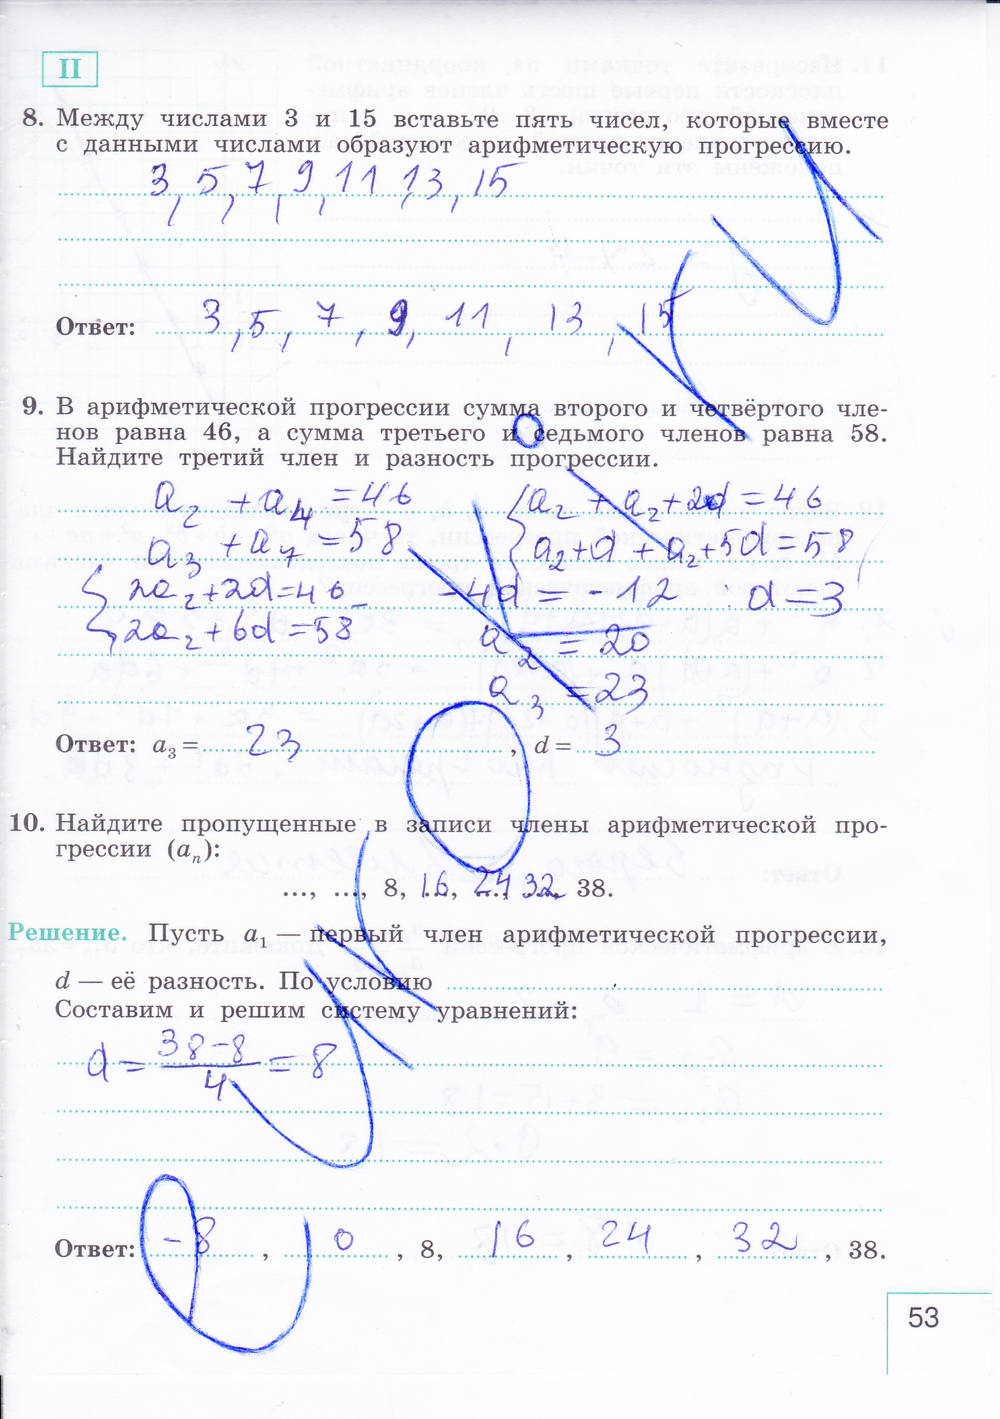 II
8. Между числами 3 и 15 вставьте пять чисел, которые вместе
с данными числами образуют арифметическую прогрессию.
3, 5, 7, 9, 11, 13, 15
Ответ: 3, 5, 7, 9, 11, 13, 15
9. В арифметической прогрессии сумма второго и четвёртого чле-
нов равна 46, а сумма третьего и седьмого членов равна 58.
Найдите третий член и разность прогрессии.
a₂ + a₄ = 46 { a₂ + a₂ + 2d = 46
a₃ + a₇ = 58 a₂ + d + a₂ + 5d = 58
{ 2a₂ + 2d = 46 - -4d = -12 d = 3
2a₂ + 6d = 58 a₂ = 20
a₃ = 23
Ответ: a₃ = 23, d = 3
10. Найдите пропущенные в записи члены арифметической про-
грессии (aₙ):
..., ..., 8, 16, 24, 32, 38.
Решение. Пусть a₁ — первый член арифметической прогрессии,
d — её разность. По условию
Составим и решим систему уравнений:
d = (38 - 8)/4 = 8
Ответ: -8, 0, 8, 16, 24, 32, 38.
53